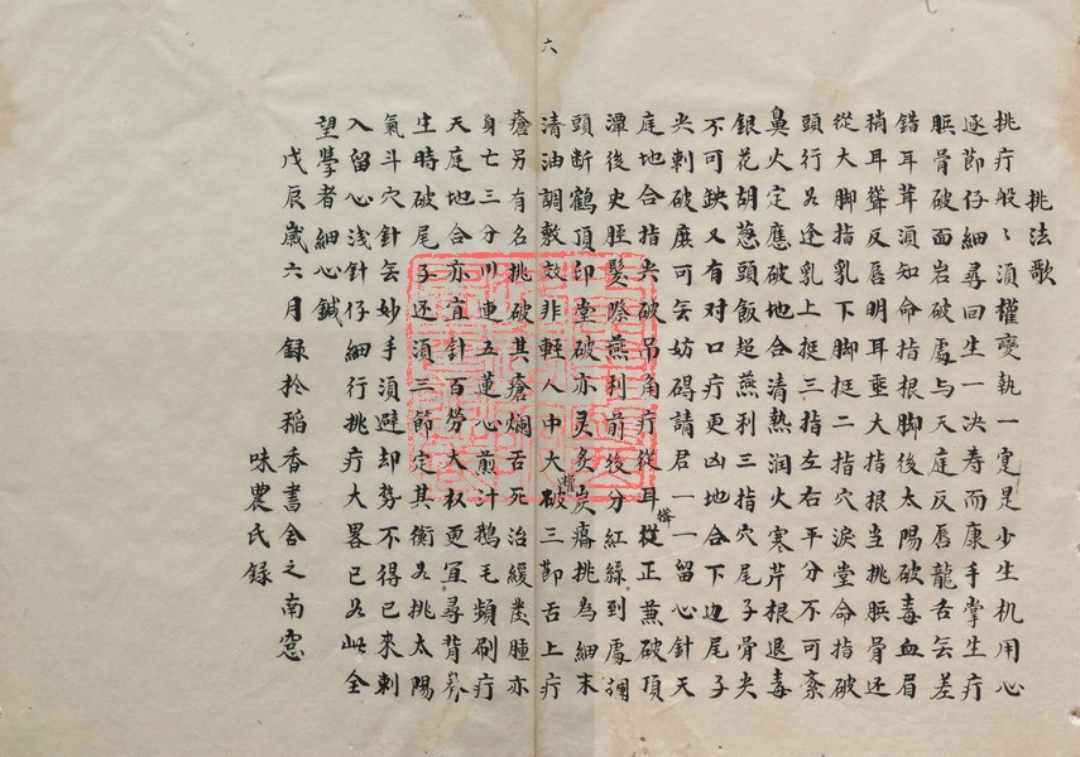 六
挑法歌
挑疔般〻須權變執一寔是少生机用心
逐節仔細尋回生一决寿而康手掌生疔
腨骨破面岩破處与天庭反唇龍舌㒰差
錯耳茸須知命指根脚後太陽破毒血眉
稍耳聳反唇明耳垂大指根当挑腨骨还
從大脚指乳下脚挺二指穴淚堂命指破
頭行另逢乳上挺三指左右平分不可紊
鼻火定應破地合清熱润火寒芹根退毒
銀花胡葱頭飯超燕利三指穴尾子骨尖
不可缺又有对口疔更凶地合下边尾子
尖刺破庶可㒰妨碍請君一一留心針天
庭地合指尖破吊角疔從耳聳從正蕉破頂
潭後史脛髪際燕利前後分紅絲到處攔
頭断鶴頂印堂破亦灵炙炭癟挑為細末
清油調敷效非輕人中大權破三節舌上疔
瘡另有名挑破其瘡爛舌死治緩發腫亦
身亡三分川連五蓮心煎汁鵝毛頻刷疔
天庭地合亦宜針百劳大杈更宜尋背
生時破尾子还須三節定其衡另挑太陽
氣斗穴針㒰妙手須避却势不得已来刺
入留心浅針仔細行挑疔大畧已另此全
望學者細心鍼
戊辰歲六月録於稻香書舍之南窓
味農氏録